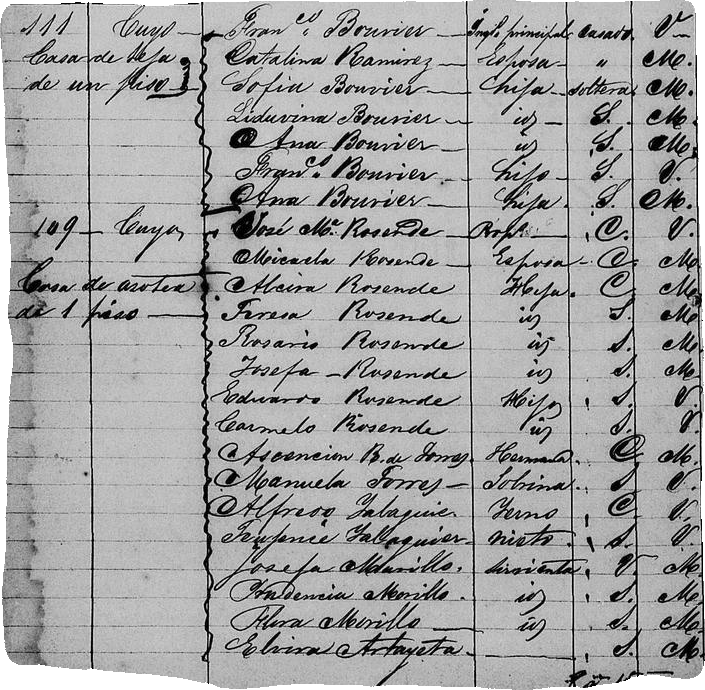 111 Cuyo Fran.co Bouvier Inql. principal casado V.
Casa de teja Catalina Ramirez Esposa " M.
de un piso Sofia Bouvier hija soltera M.
Liduvina Bouvier id S. M.
Ana Bouvier id S. M.
Fran.co Bouvier hijo S. V.
Ana Bouvier hija S. M.
109 Cuyo José Ma. Rosende Prop. C. V.
Micaela Rosende Esposa C. M
Casa de azotea Alcira Rosende Hija. C M
de 1 piso Teresa Rosende id S. M
Rosario Rosende id S. M.
Josefa Rosende id S. M
Eduardo Rosende Hijo S. V.
Carmelo Rosende id S. V.
Ascencion B. de Torres. Hermana C M.
Manuela Torres Sobrina. S V.
Alfredo Yerno C. V.
nieto. S. V.
Josefa Murillo. sirvienta V M.
Prudencia Morillo. id S. M
Flora Morillo id S. M
Elvira Artayeta S. M.